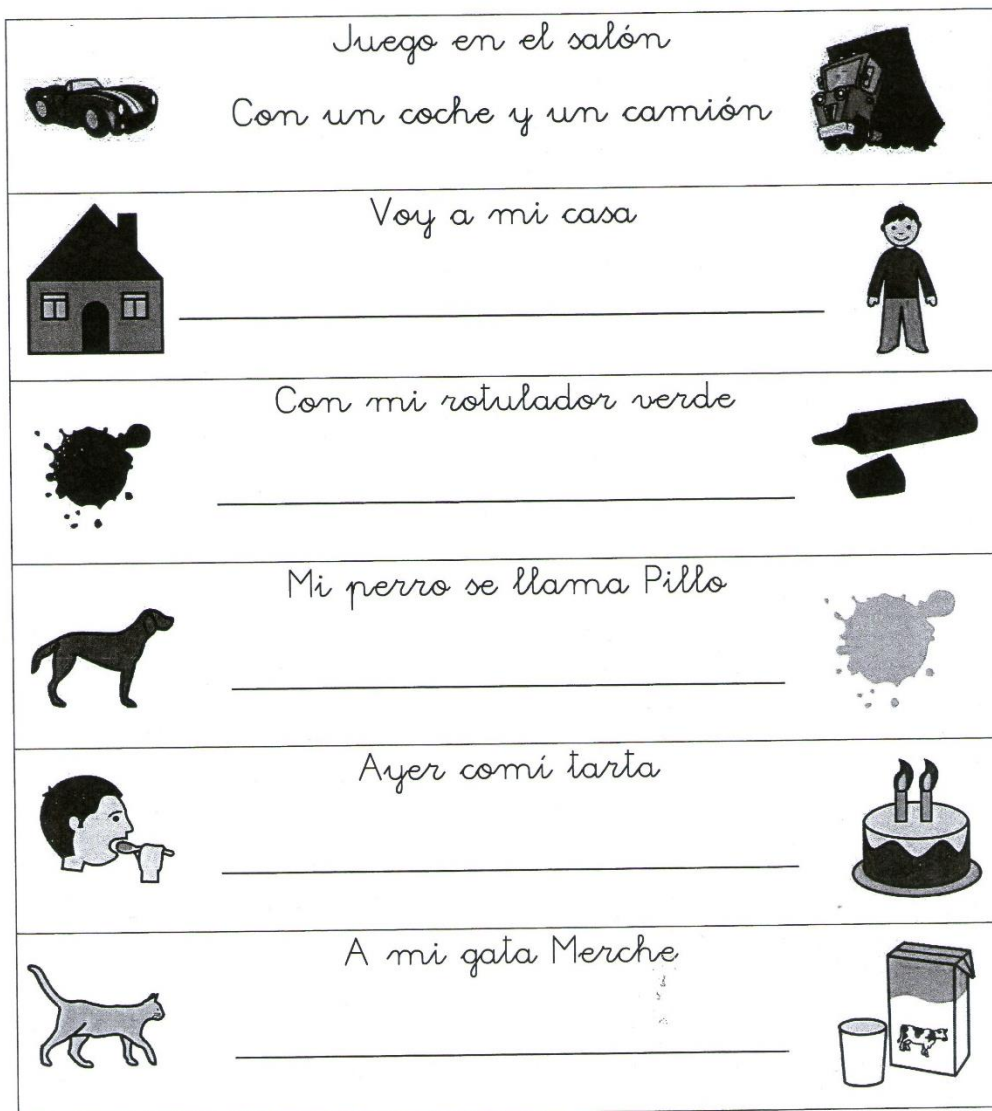 Juego en el salón
Con un coche y un camión
Voy a mi casa
Con mi rotulador verde
Mi perro se llama Pillo
Ayer comí tarta
A mi gata Merche